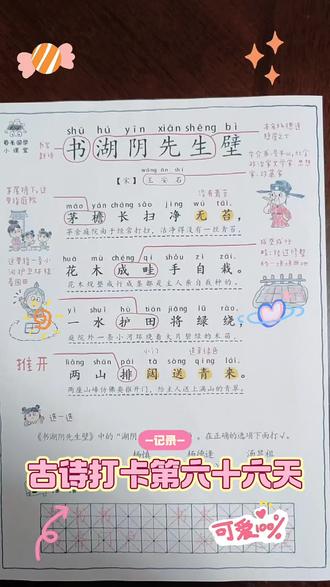 小课堂
shū hú yīn xiān shēng bì
书湖阴先生壁
wáng ān shí
[宋] 王安石
没有青苔
máo yán cháng sǎo jìng wú tái,
茅檐长扫净无苔，
茅舍庭院由于经常打扫，洁净得没有一丝青苔。
huā mù chéng qí shǒu zì zāi.
花木成畦手自栽。
花木规整成行成垄都是主人亲自栽种的。
yì shuǐ hù tián jiāng lǜ rào,
一水护田将绿绕，
庭院外一条小河环绕着大片碧绿的禾苗，
推开
小门
liǎng shān pái tà sòng qīng lái.
两山排闼送青来。
两座山峰仿佛要推开门，给主人送上满山的青翠。
选一选
《书湖阴先生壁》中的“湖阴
在正确的选项下面打√。
杨慎
杨德逢
汤显祖
-记录-
古诗打卡第六十六天
可爱100%